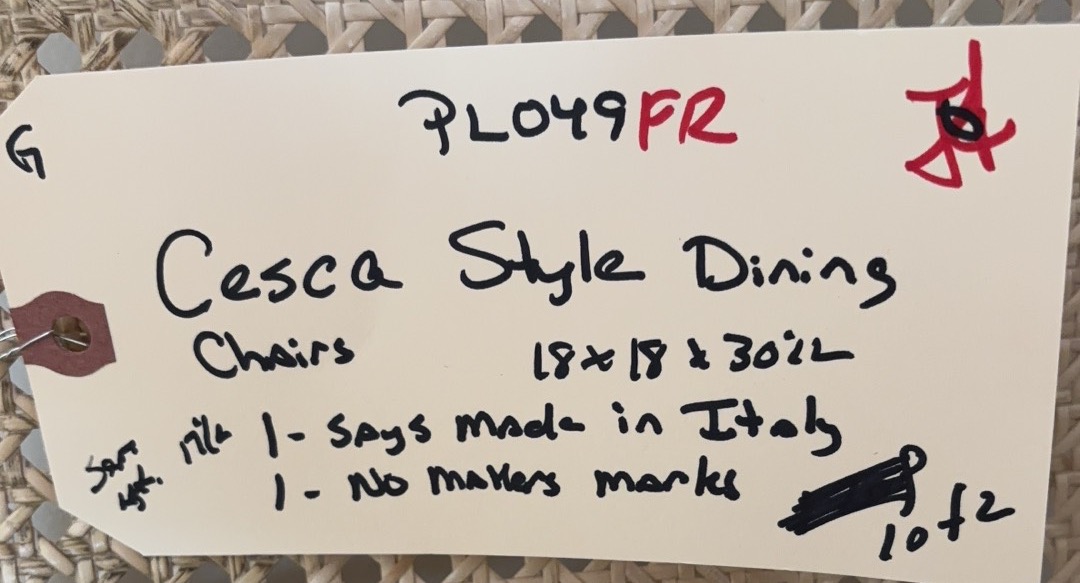 G
PL049FR
Cesca Style Dining
Chairs 18 x 18 x 30
1 - says made in Italy
1 - No makers marks
1 of 2